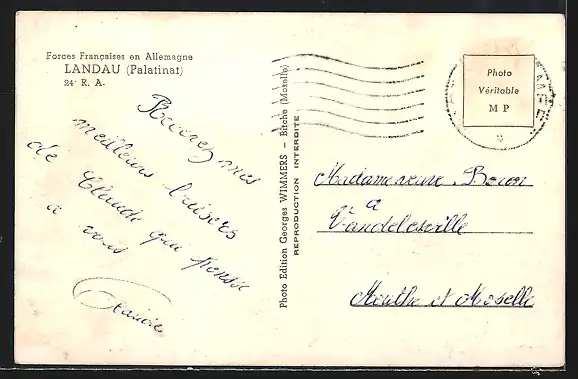 Forces Françaises en Allemagne
LANDAU (Palatinat)
24e R. A.
Recevez mes
meilleurs baisers
de Claude qui pense
à vous
Photo Edition Georges WIMMERS - Bitche (Moselle)
REPRODUCTION INTERDITE
Photo
Véritable
M P
Madame veuve
à
Vandeléville
Meurthe et Moselle